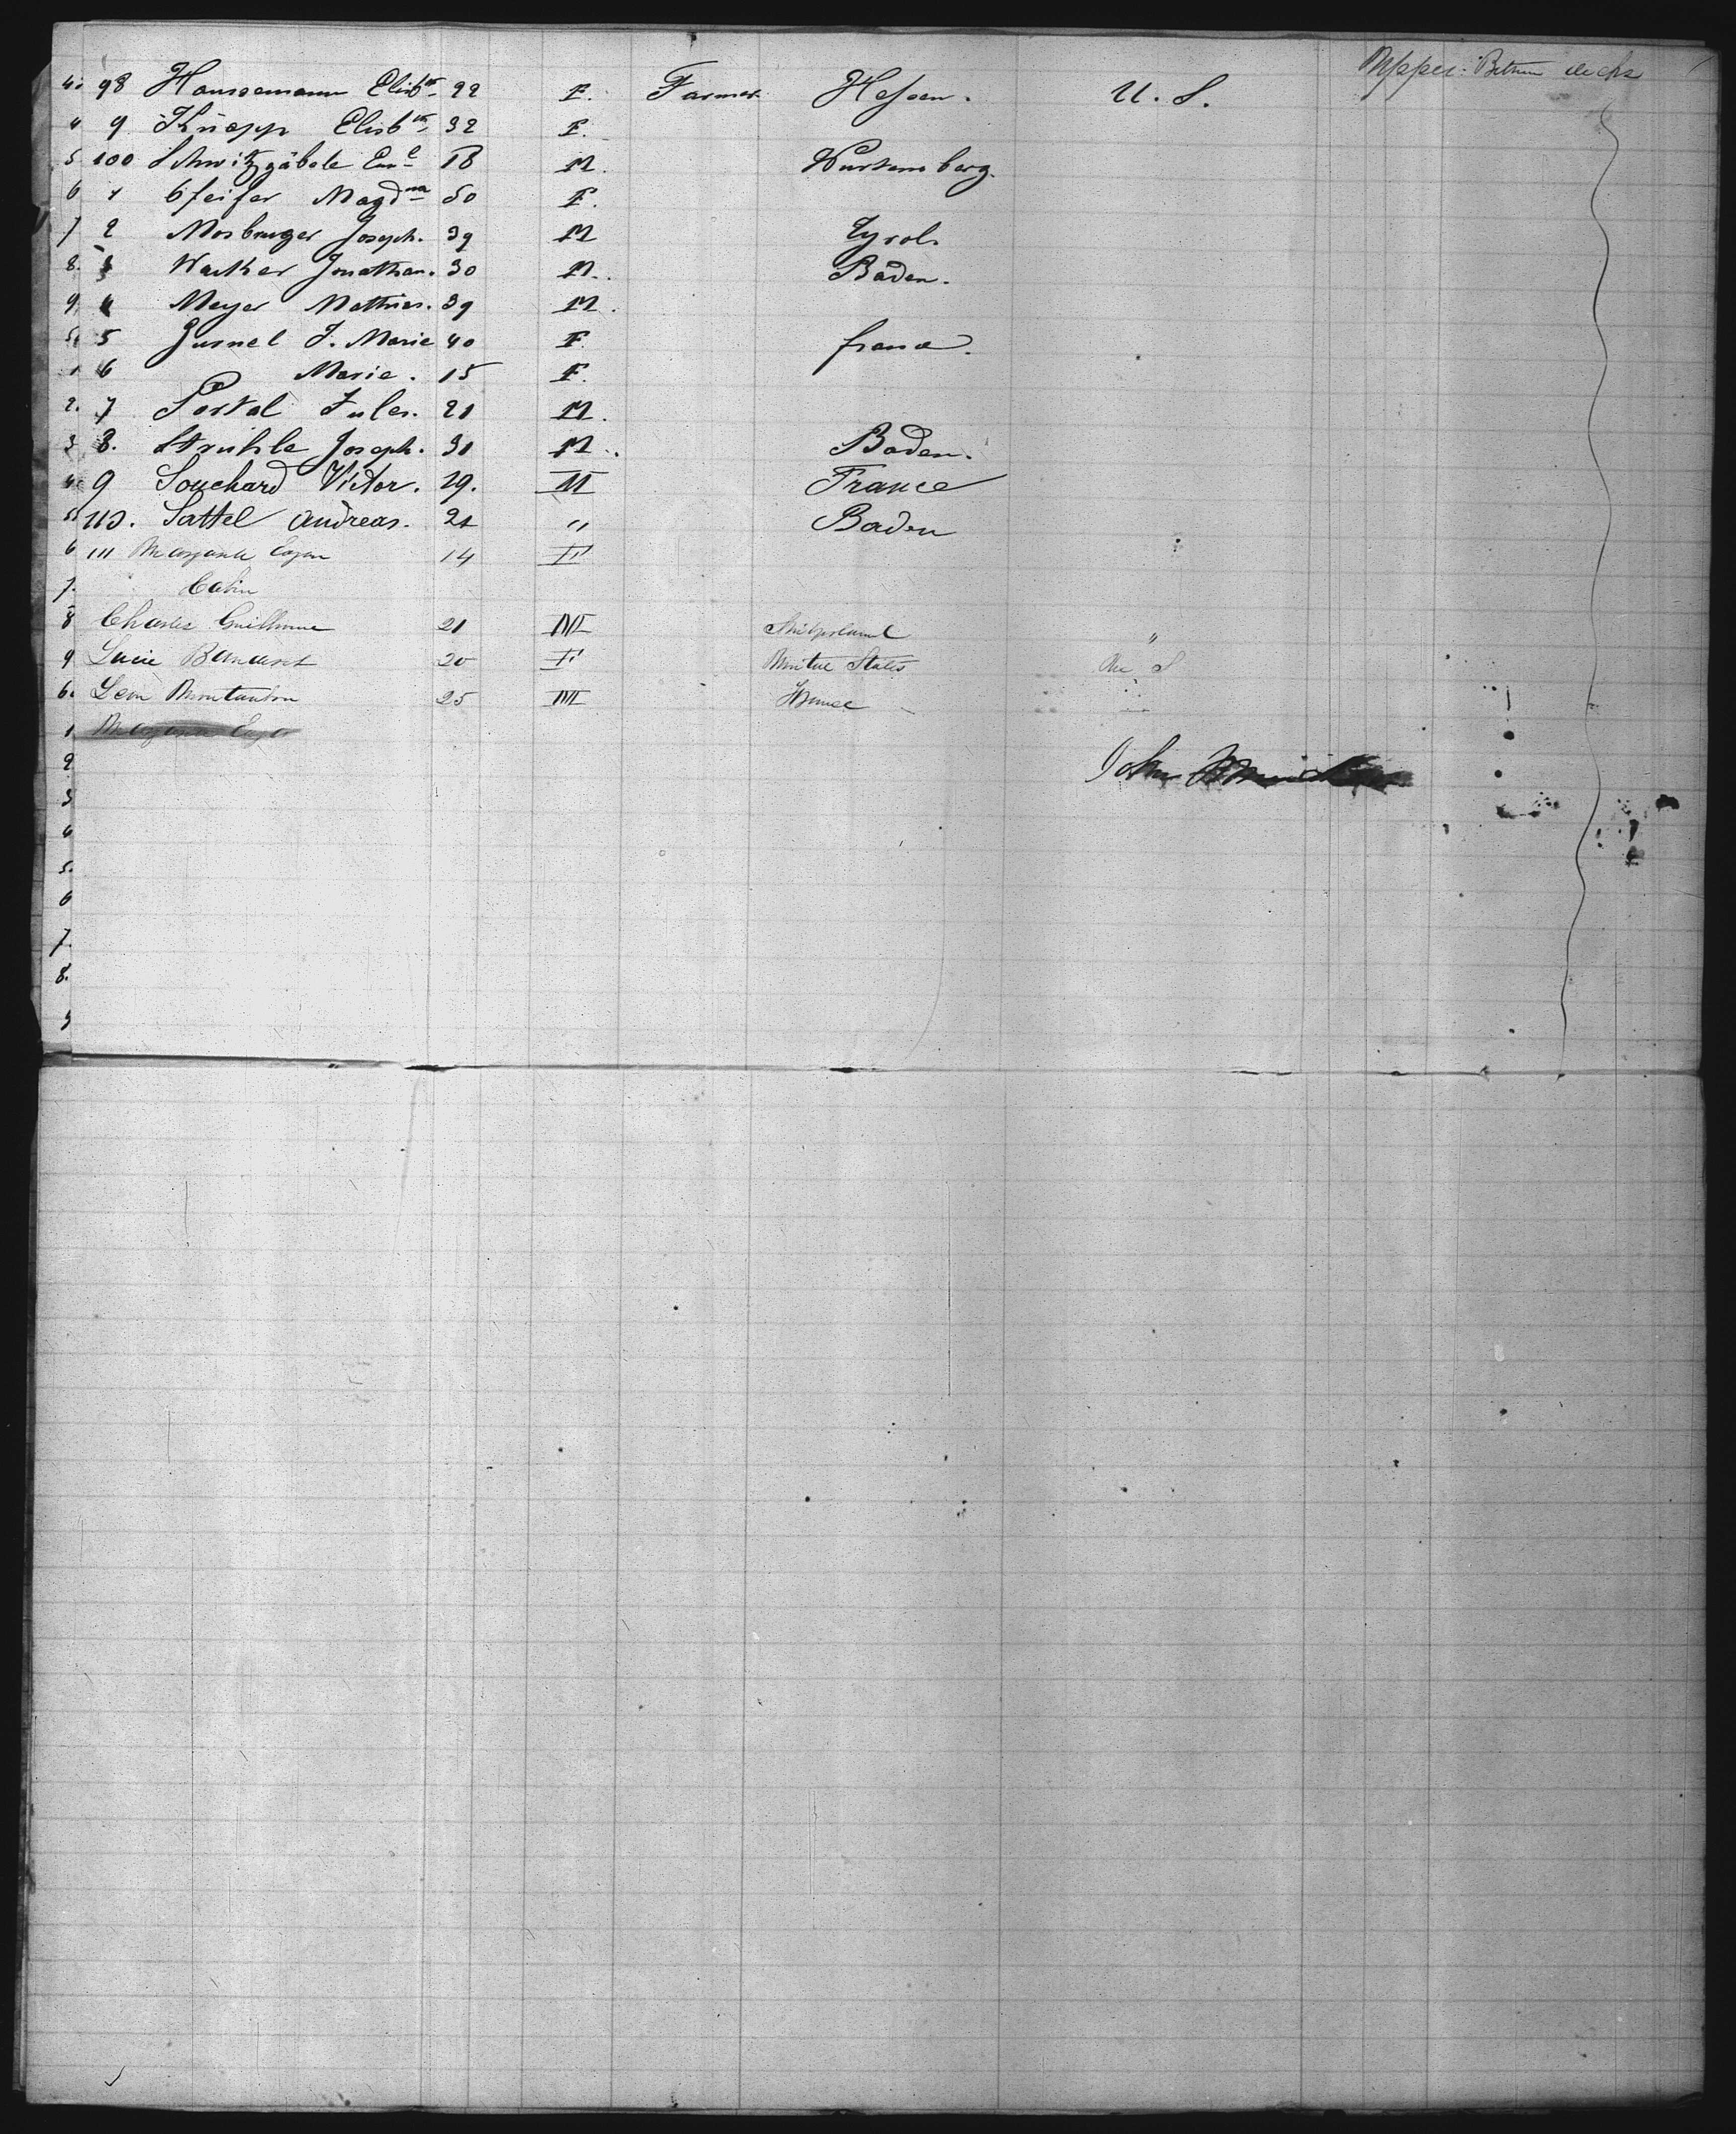 Upper: Between decks
4. 98 Haussemann Elisbth 22 F. Farmer Hessen. U. S.
4 9 Knapp Elisbth 32 F.
5 100 Schwitzgäbele Eue 18 M. Wurtemberg.
6 1 Pfeifer Magdna 50 F.
7 2 Mosbruger Joseph. 39 M Tyrol.
8. 3 Walker Jonathan. 30 M. Baden.
9 4 Meyer Mathias. 39 M.
5. 5 J. Marie 40 F. france.
1 6 Marie. 15 F.
2. 7 Portal Jules. 21 M.
3 8. Struhle Joseph. 31 M. Baden.
4. 9 Souchard Victor. 29. M France
5 110. Sattel Andreas. 21 " Baden
6 111 14 F
7. Cabin
8 Charles Guillaume 21 M Switzerland "
9 Lucie 20 F United States U S
6. Leon Montandon 25 M France
1
2 John
3
4
5.
6
7.
8.
9